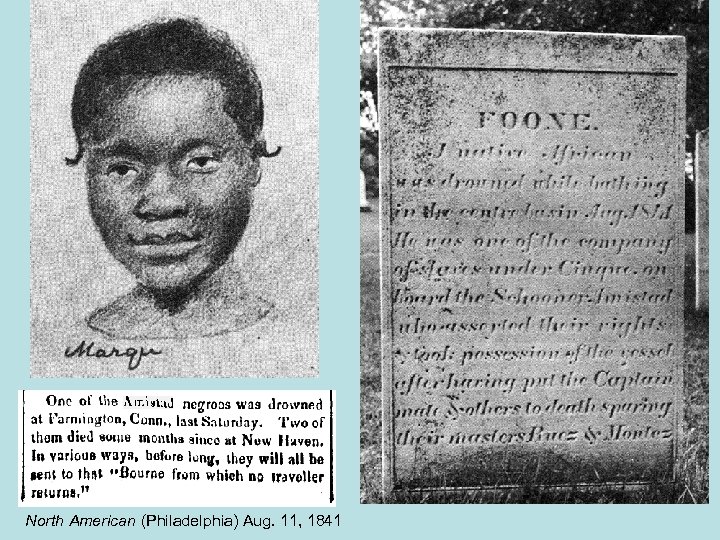 Margu
One of the Amistad negroes was drowned
at Farmington, Conn., last Saturday. Two of
them died some months since at New Haven.
In various ways, before long, they will all be
sent to that "Bourne from which no traveller
returns."
North American (Philadelphia) Aug. 11, 1841
FOONE.
A native African
was drowned while bathing
in the centre basin Aug. 1841.
He was one of the company
of slaves under Cinque, on
board the Schooner Amistad
who asserted their rights
& took possession of the vessel
after having put the Captain
mate & others to death sparing
their masters Ruez & Montez